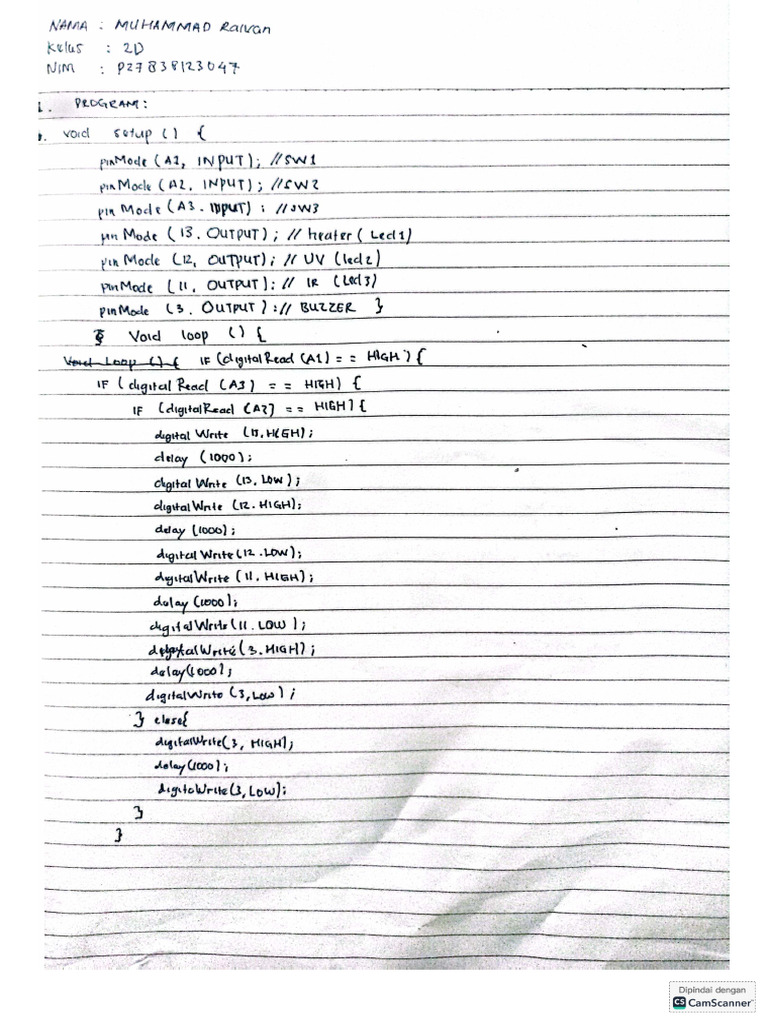 NAMA : MUHAMMAD Raivan
Kelas : 2D
NIM : P27838123047
1. PROGRAM :
void setup () {
pinMode (A1, INPUT); //SW1
pinMode (A2, INPUT); //SW2
pin Mode (A3. INPUT) ; //SW3
pin Mode (13. OUTPUT); // heater (Led1)
pin Mode (12, OUTPUT); // UV (led2)
pinMode (11, OUTPUT): // IR (Led3)
pinMode (3. OUTPUT) :// BUZZER }
Void loop () {
Void Loop () { IF (digitalRead (A1) == HIGH) {
IF (digital Read (A3) == HIGH) {
IF (digitalRead (A2) == HIGH) {
digital Write (13, HIGH);
delay (1000);
digital Write (13, LOW);
digitalWrite (12. HIGH);
delay (1000);
digitalWrite (12 .LOW);
digitalWrite (11. HIGH);
delay (1000);
digitalWrite (11. LOW );
digitalWrite (3. HIGH);
delay (1000);
digitalWrite (3, Low) ;
} else{
digitalWrite(3, HIGH);
delay (1000);
digitalWrite(3, LOW);
}
}
Dipindai dengan
CS CamScanner